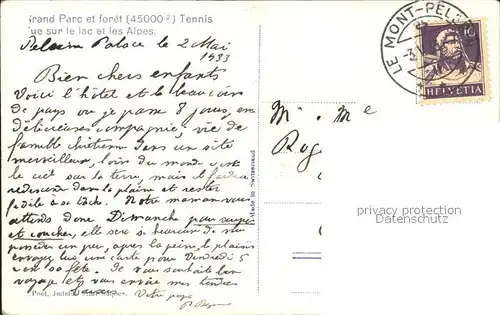 Grand Parc et forêt (45000 ²) Tennis
Vue sur le lac et les Alpes.
Pelerin Palace le 2 Mai
1933
Bien chers enfants
Voici l'hôtel et le beau coin
de pays ou je passe 8 jours, en
délicieuse compagnie; vie de
famille chrétienne dans un site
merveilleux, loin du monde c'est
le ciel sur la terre, mais il faudra
redescendre dans la plaine et rester
fidèle à sa tâche. Notre maman vous
attend donc Dimanche pour souper
et coucher, elle sera si heureuse de vous
posséder un peu, après la peine, le plaisir
envoyez lui une carte pour Vendredi 5
c'en sa fête. Je vous souhaite bon
voyage et vous envoie mes tendres
baisers Votre papa
Phot.
Made in Switzerland
LE MONT-PÈLERIN
10
HELVETIA
M. Me
privacy protection
Datenschutz